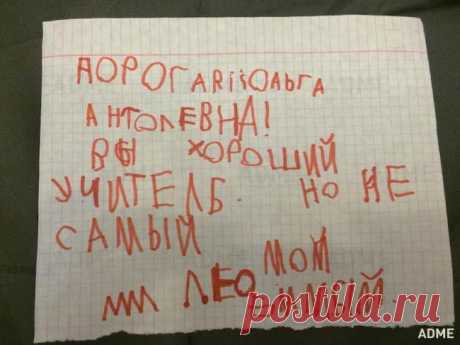 ДОРОГАЯ ОЛЬГА
АНТОЛЕВНА!
ВЫ ХОРОШИЙ
УЧИТЕЛЬ. НО НЕ
САМЫЙ
МОЙ
ЛЕО
postila.ru
ADME